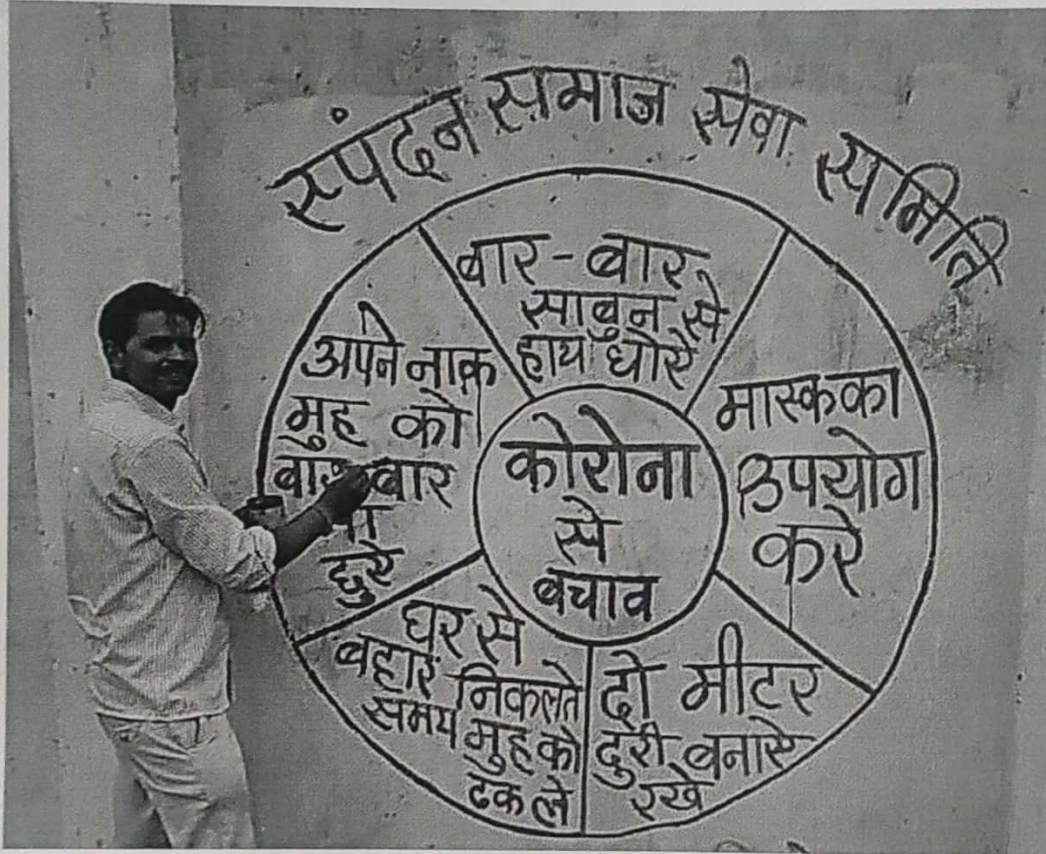 स्पंदन समाज सेवा समिति
बार-बार
साबुन से
हाथ धोऐ
मास्क का
उपयोग
करे
दो मीटर
दुरी बनाऐ
रखे
घर से
बहार निकलते
समय मुह को
ढक ले
अपने नाक
मुह को
बार बार
ना
छुऐ
कोरोना
से
बचाव